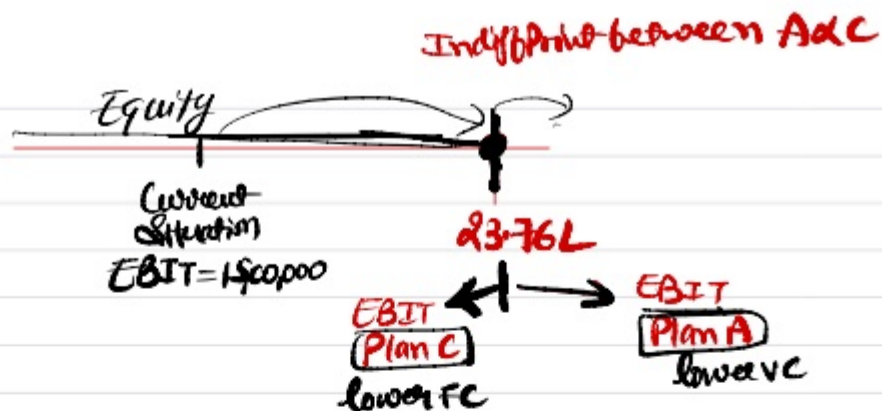 Indiff Point between A & C
Equity
Current
Situation
EBIT = 1500,000
23.76L
EBIT
Plan C
lower FC
EBIT
Plan A
lower VC